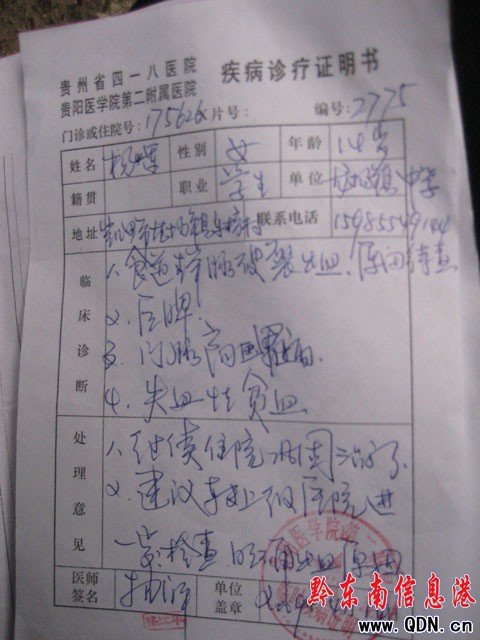 贵州省四一八医院
贵阳医学院第二附属医院
疾病诊疗证明书
门诊或住院号: 175626 片号: 编号: 2775
姓名 杨 性别 女 年龄 14岁
籍贯 职业 学生 单位 中学
地址 联系电话
临床诊断
1. 食道静脉破裂出血.原因待查
2. 巨脾.
3. 门脉高血
4. 失血性贫血
处理意见
1. 继续住院巩固治疗
2. 建议去上级医院进
一步检查 明确出血原因
医师签名 单位盖章
黔东南信息港
www.QDN.cn